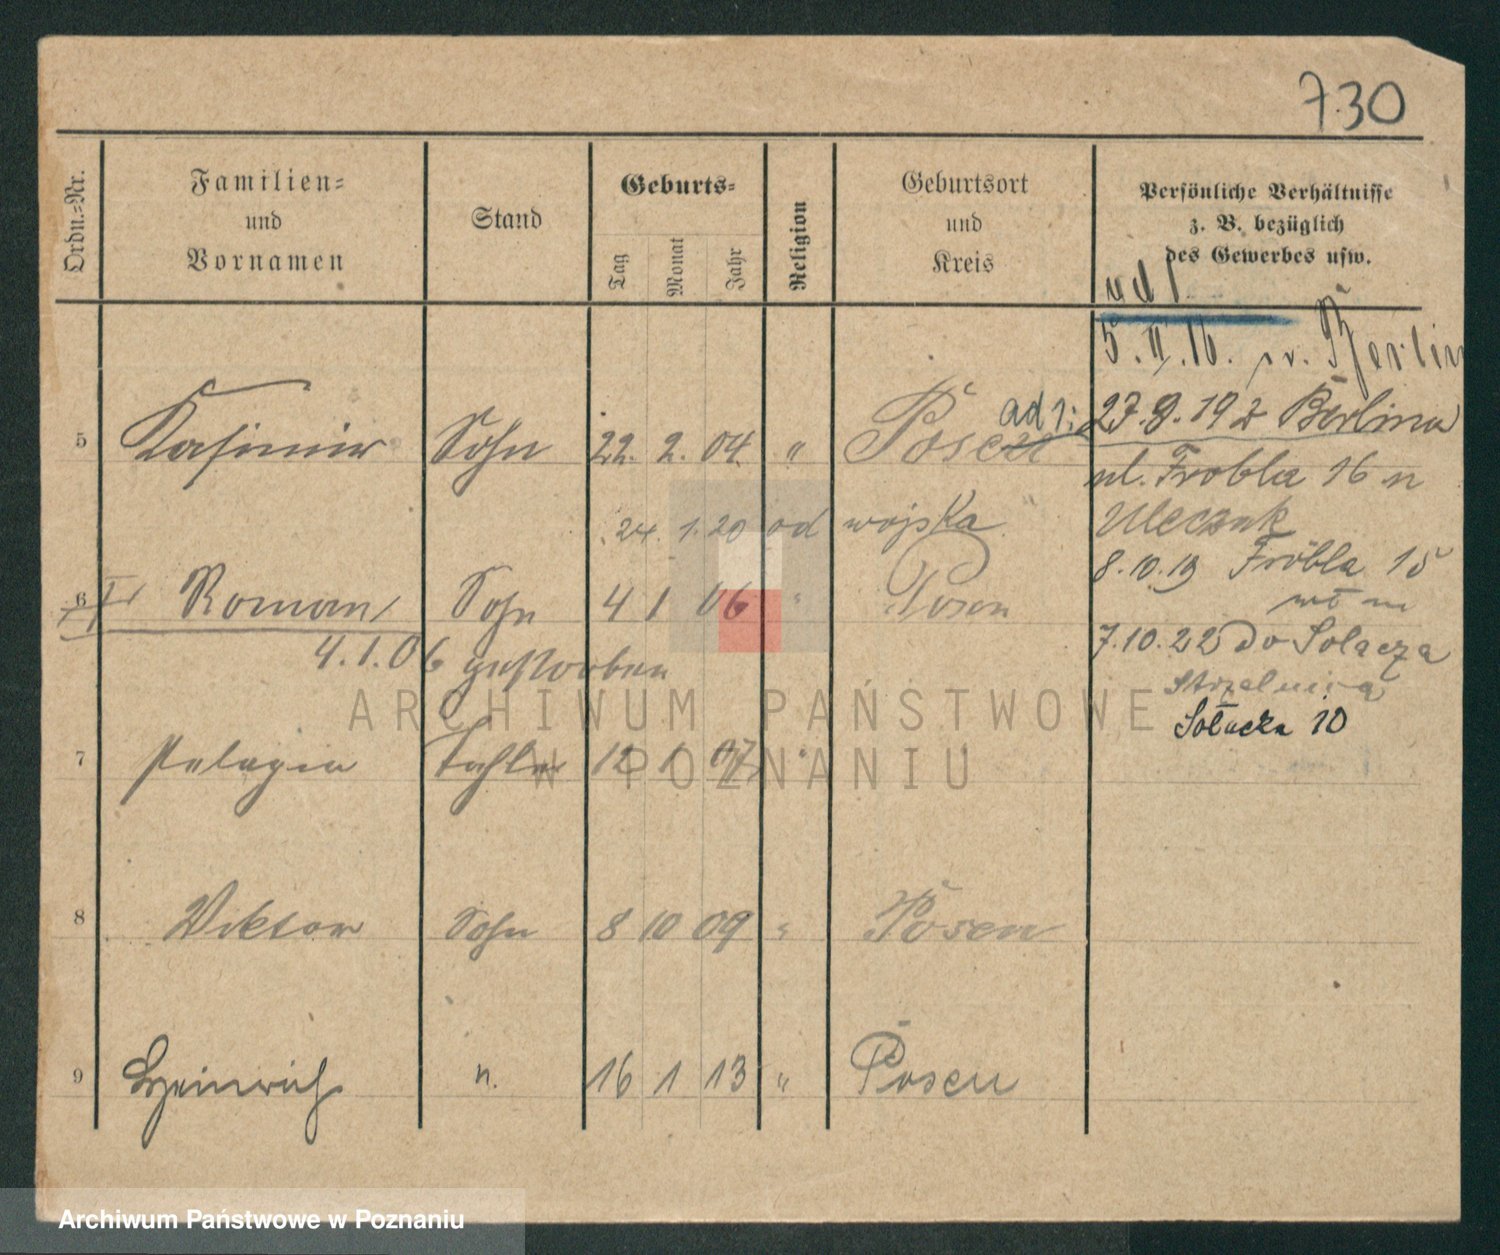 730
Ordn.-Nr.
Familien-
und
Vornamen
Stand
Geburts-
Tag
Monat
Jahr
Religion
Geburtsort
und
Kreis
Persönliche Verhältnisse
z. B. bezüglich
des Gewerbes usw.
ad 1
5. II. 16. v. Berlin
5 Kasimir Sohn 22. 2. 04. " Posen
ad 1: 27.9.19 z Berlina
ul. Frobla 16 n
24. 1. 20 od wojska
8.10.19 Fröbla 15
6 Roman Sohn 4 1 06 " Posen
4.1.06 gestorben
7.10.22 Do Solacza
Strzelnica
Sołacka 10
7 Pelagia Tochter 12 1 07 "
8 Viktor Sohn 8 10 09 " Posen
9 Heinrich n. 16 1 13 " Posen
ARCHIWUM PAŃSTWOWE
W POZNANIU
Archiwum Państwowe w Poznaniu